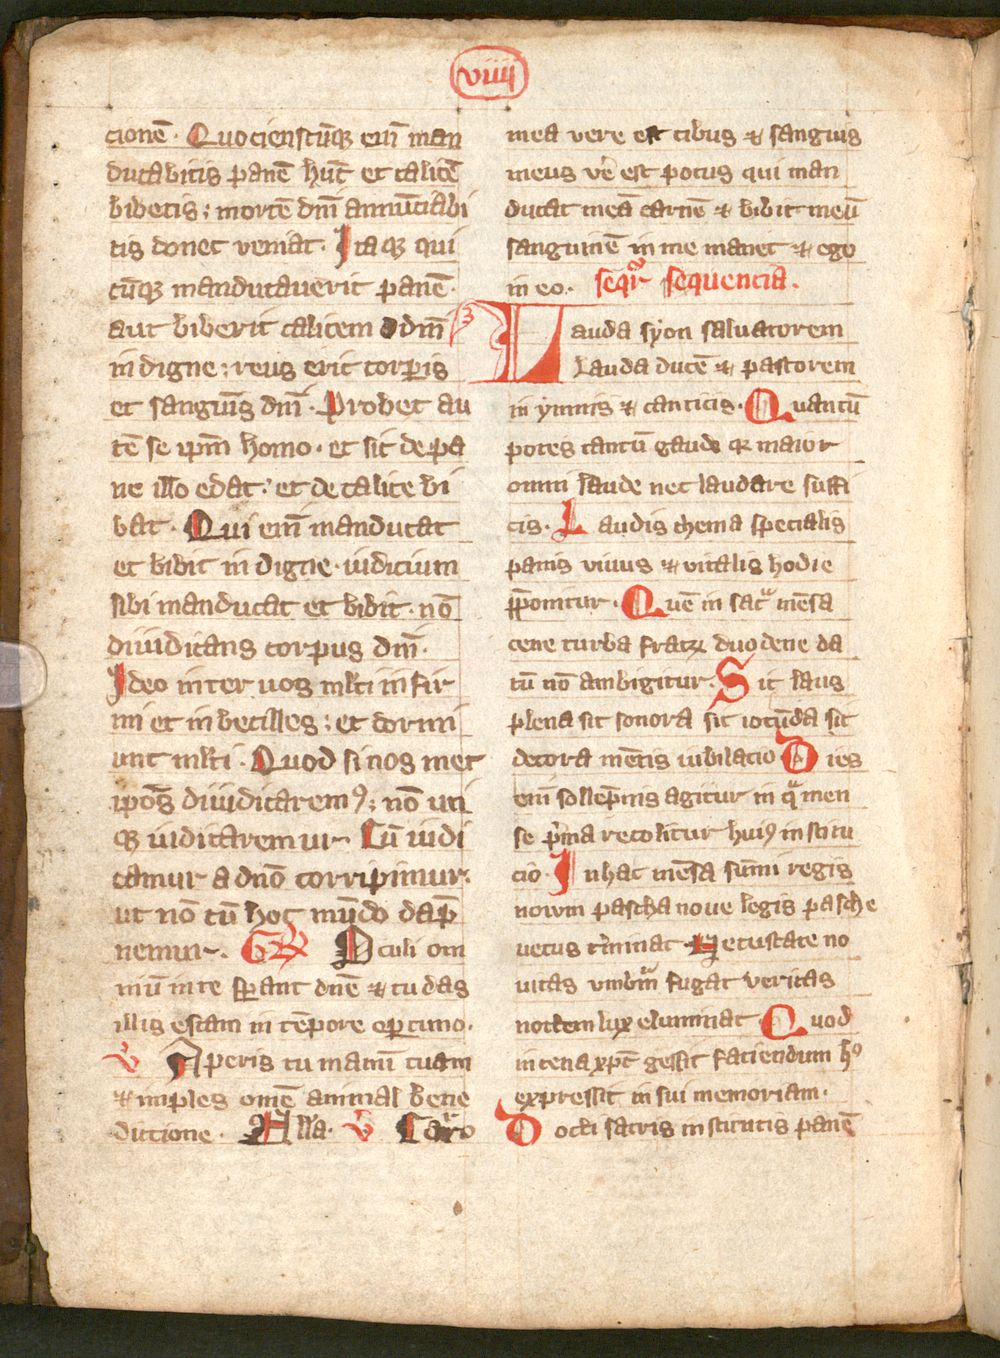 viiij
cionē. Quocienscūqꝫ eni͞ man
ducabitis panē hūc et calicē
bibetis; mortē dn͞i annūciabi
tis donec veniat. Itaqꝫ qui
cūqꝫ manducaverit panē.
aut biberit calicem dn͞i
indigne; reus erit corꝑis
et sanguīs dn͞i. Probet au
tē se ip͞m homo. et sit de pa
ne illo edat. et de calice bi
bat. Qui eni͞ manducat
et bibit indigne. iudicium
sibi manducat et bibit. nō
diiudicans corpus dn͞i.
Ideo inter uos ml͞ti infir
mi et inbecilles; et dormi
unt ml͞ti. Quod si nos met
ip͞os diiudicaremꝰ; nō uti
qꝫ iudicaremur. Cū iudi
camur a dn͞o corripimur.
ut nō cū hoc mūdo dāp
nemur. Gr͞ Oculi om
niū in te sꝑant dn͞e ⁊ tu das
illis escam in tēpore oportuno.
℣ Aperis tu manū tuam
⁊ imples om͞e animal bene
dictione. All͞a. ℣ Caro
mea vere est cibus ⁊ sanguis
meus ve͞ est potus qui man
ducat meā carnē ⁊ bibit meū
sanguinē in me manet ⁊ ego
in eo. seqr͞ sequencia.
Lauda syon saluatorem
Lauda ducē ⁊ pastorem
in ymnis ⁊ canticis. Quantū
potes tantū gaude qꝛ maior
omni laude nec laudare suffi
cis. Laudis thema specialis
panis viuus ⁊ vitalis hodie
ꝓponitur. Quē in sacͣ mēsa
cene turba fratꝝ duodene da
tū nō ambigitur. Sit laus
plena sit sonora sit iocūda sit
decora mētis iubilacio Dies
eni͞ sollēpnis agitur in qͣ men
se pͥma recolitur huiꝰ institu
cio. In hac mēsa sūmi regis
novum pascha noue legis pasche
vetus t͛minat. Vetustate no
uitas vmbrͣm fugat veritas
noctem lux eluminat. Quod
in cena xp͞c gessit faciendum hͦ
expressit in sui memoriam.
Docti sacris institutis panē